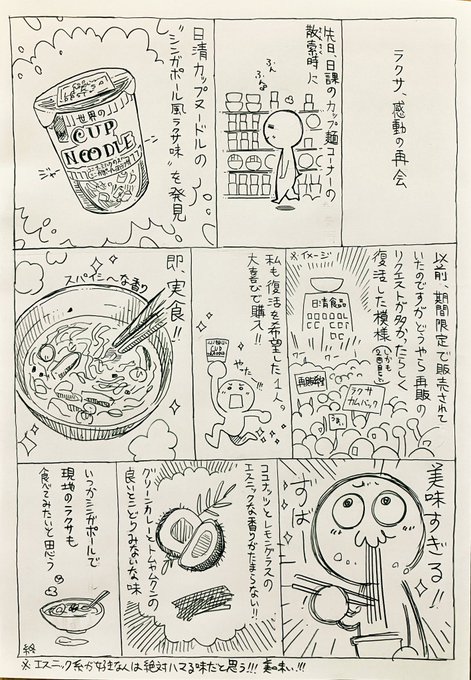 ラクサ、感動の再会
先日、日課のカップ麺コーナーの
散策時に
ふん
ふん
日清カップヌードルの
"シンガポール風ラクサ味"を発見
世界の
CUP
NOODLE
ジャーン
以前、期間限定で販売されて
いたのですがどうやら再販の
リクエストが多かったらしく
復活した模様
※イメージ
日清食品
再販希望
ラクサ
カムバック
私も復活を希望した1人。
大喜びで購入!!
やったー!!
即、実食!!
スパイシーな香り
美味すぎる!!
ずばー
ココナッツとレモングラスの
エスニックな香りがたまらない!!
グリーンカレーとトムヤムクンの
良いとこどりみたいな味
いつかシンガポールで
現地のラクサも
食べてみたいと思う
終
※エスニック系が好きな人は絶対ハマる味だと思う!!! 美味い!!!